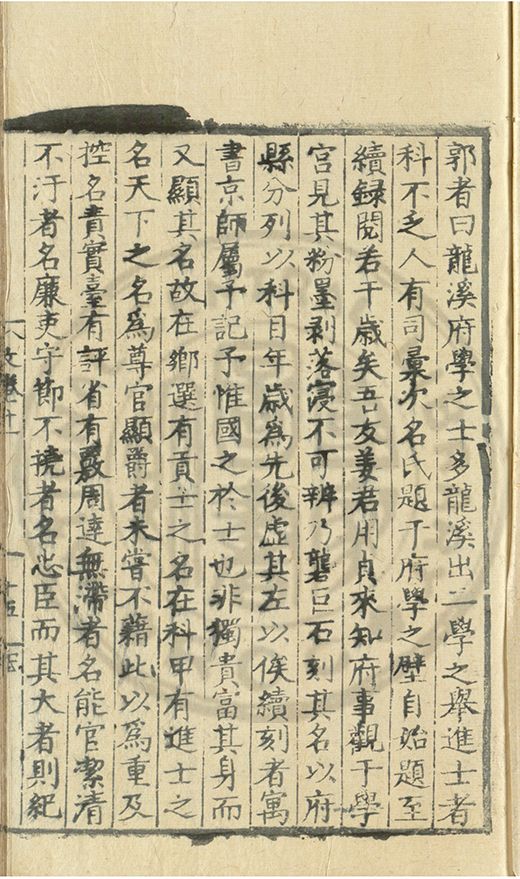 郭者曰龍溪府學之士多龍溪出二學之舉進士者
科不乏人有司彙次名氏題于府學之壁自始題至
續録閱若干歲矣吾友姜君用貞來知府事觀于學
宮見其粉墨剥落寖不可辨乃礱巨石刻其名以府
縣分列以科目年歲為先後虛其左以俟續刻者寓
書京師屬予記予惟國之於士也非獨貴富其身而
又顯其名故在鄉選有貢士之名在科甲有進士之
名天下之名為尊官顯爵者未嘗不藉此以為重及
控名責實臺有評省有覈周達無滯者名能官潔清
不汙者名廉吏守節不撓者名忠臣而其大者則紀
文卷十一
十五